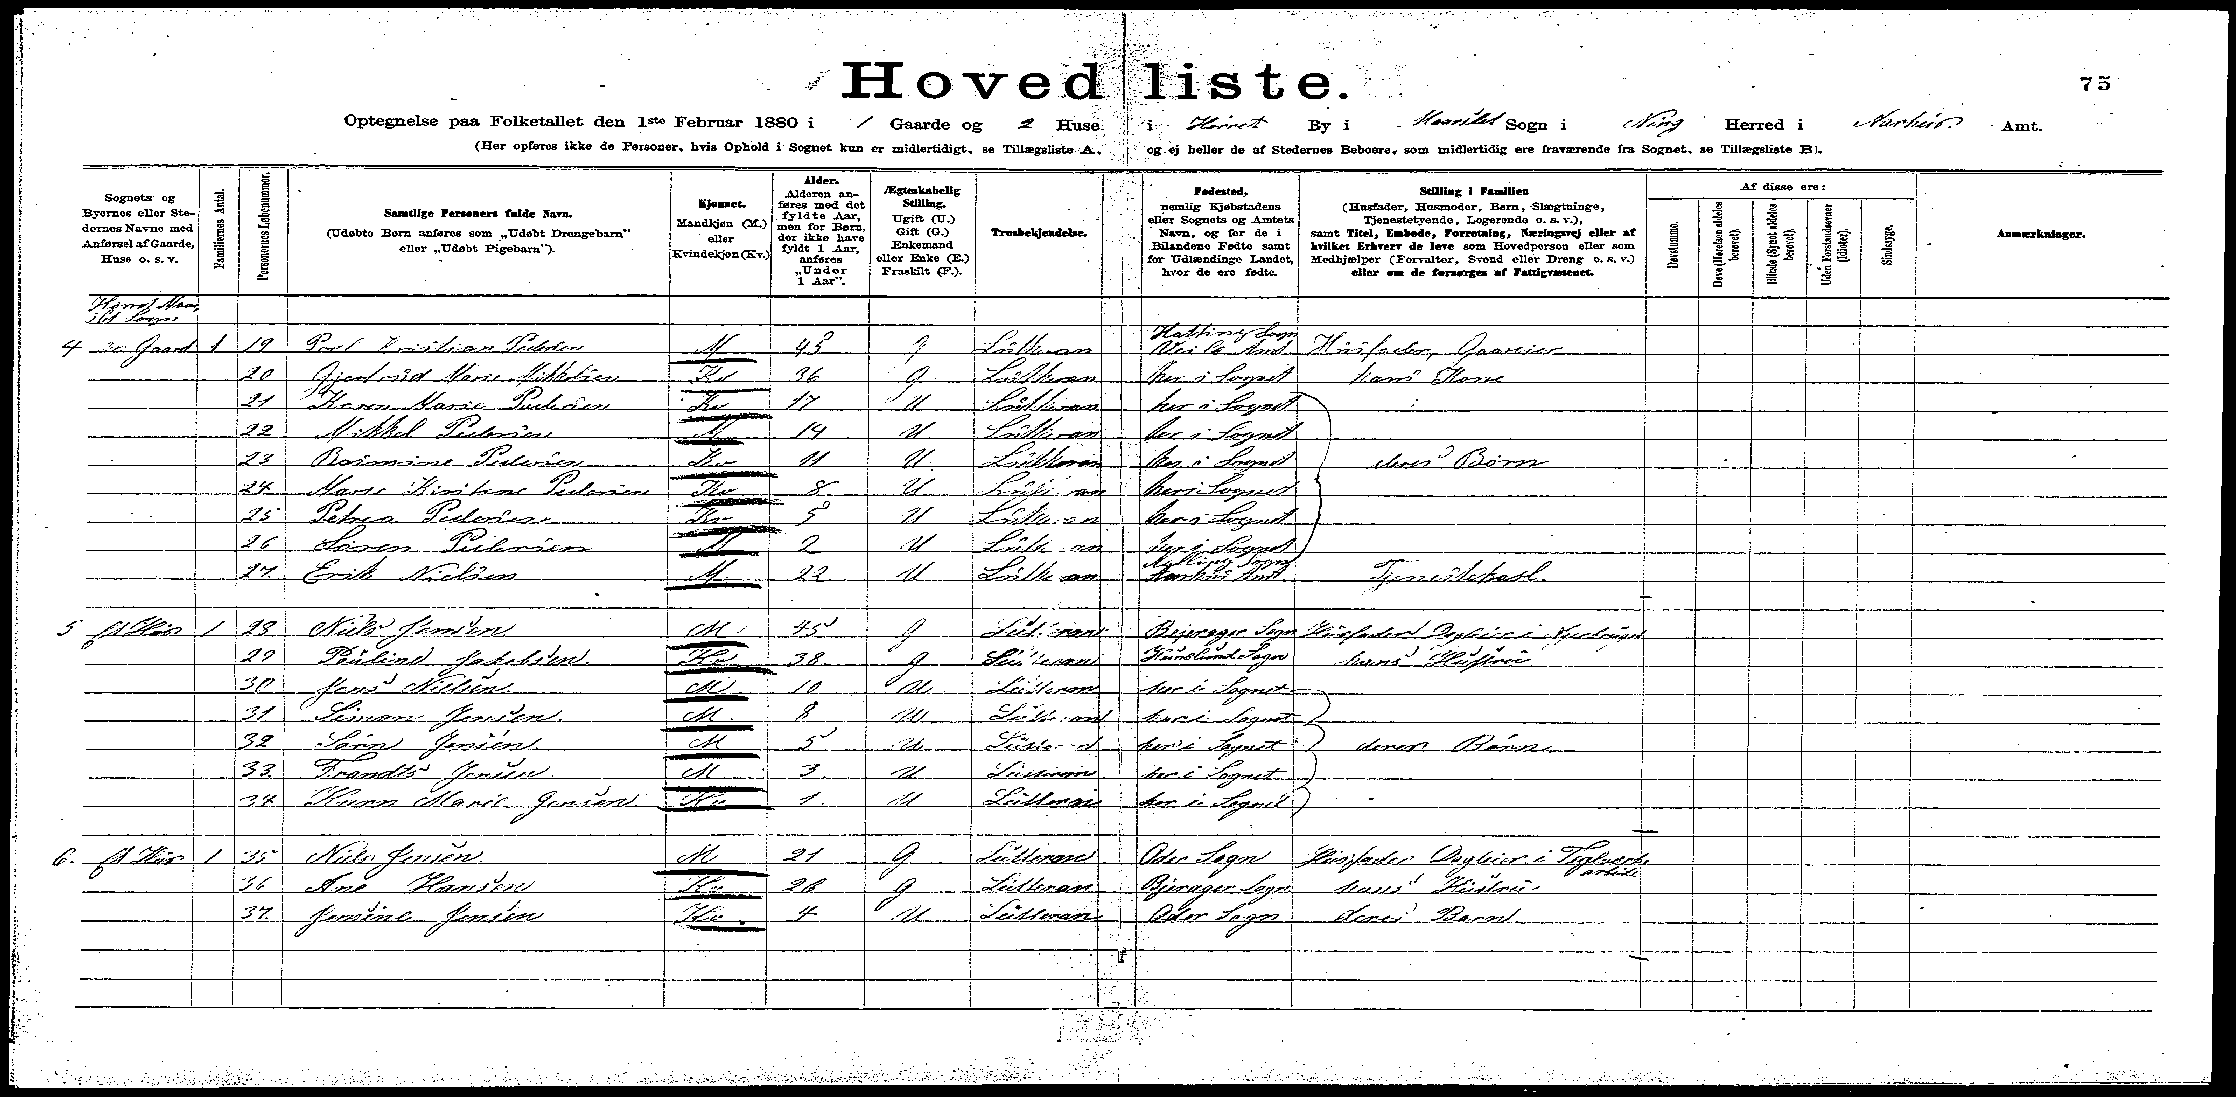 Hovedliste.
75
Optegnelse paa Folketallet den 1ste Februar 1880 i 1 Gaarde og 2 Huse i Hørret By i Maarslet Sogn i Ning Herred i Aarhus Amt.
(Her opføres ikke de Personer, hvis Ophold i Sognet kun er midlertidigt, se Tillægsliste A, og ej heller de af Stedernes Beboere, som midlertidig ere fraværende fra Sognet, se Tillægsliste B).
Sognets og Byernes eller Stedernes Navne med Anførsel af Gaarde, Huse o. s. v.
Familiernes Antal.
Personernes Løbenummer.
Samtlige Personers fulde Navn.
(Udøbte Børn anføres som „Udøbt Drengebarn" eller „Udøbt Pigebarn").
Kjønnet.
Mandkjøn (M.) eller Kvindekjøn (Kv.)
Alder.
Alderen anføres med det fyldte Aar, men for Børn, der ikke have fyldt 1 Aar, anføres „Under 1 Aar".
Ægteskabelig Stilling.
Ugift (U.) Gift (G.) Enkemand eller Enke (E.) Fraskilt (F.).
Troesbekjendelse.
Fødested,
nemlig Kjøbstadens eller Sognets og Amtets Navn, og for de i Bilandene Fødte samt for Udlændinge Landet, hvor de ere fødte.
Stilling i Familien
(Husfader, Husmoder, Barn, Slægtninge, Tjenestetyende, Logerende o. s. v.), samt Titel, Embede, Forretning, Næringsvej eller af hvilket Erhverv de leve som Hovedperson eller som Medhjælper (Forvalter, Svend eller Dreng o. s. v.) eller om de forsørges af Fattigvæsenet.
Af disse ere:
Døvstumme.
Døve (Hørelsen aldeles berøvet).
Blinde (Synet aldeles berøvet).
Uden Forstandsevner (Idioter).
Sindssyge.
Anmærkninger.
4 Gaard 1 19 Poul Kristian Pedersen M 45 G Lutheran Hatting Sogn Veile Amt Husfader, Gaardeier
20 Gjertrud Marie Mikkelsen Kv 36 G Lutheran her i Sognet hans Kone
21 Karen Marie Pedersen Kv 17 U Lutheran her i Sognet
22 Mikkel Pedersen M 14 U Lutheran her i Sognet
23 Rasmine Pedersen Kv 11 U Lutheran her i Sognet deres Børn
24 Marie Kirstine Pedersen Kv 8 U Lutheran her i Sognet
25 Petrea Pedersen Kv 5 U Lutheran her i Sognet
26 Søren Pedersen M 2 U Lutheran her i Sognet
27 Erik Nielsen M 22 U Lutheran Sogn Aarhus Amt Tjenestekarl.
5 et Hus 1 28 Niels Jensen M 45 G Lutheran Bejerager Sogn Husfader Dagleier i
29 Pauline Jakobsen Kv 38 G Lutheran Hundslund Sogn hans Hustru
30 Jens Nielsen M 10 U Lutheran her i Sognet
31 Simon Jensen. M 8 U Lutheran her i Sognet
32 Sørn Jensen. M 5 U Lutheran her i Sognet deres Børn
33 Frandts Jensen M 3 U Lutheran her i Sognet
34 Karen Marie Jensen Kv 1 U Lutheran her i Sognet
6. et Hus 1 35 Niels Jensen M 21 G Lutheran Oder Sogn Husfader Dagleier i Teglværks arbeide
36 Ane Hansen Kv 26 G Lutheran Bjerager Sogn hans Hustru
37 Jensine Jensen Kv 4 U Lutheran Oder Sogn deres Barn